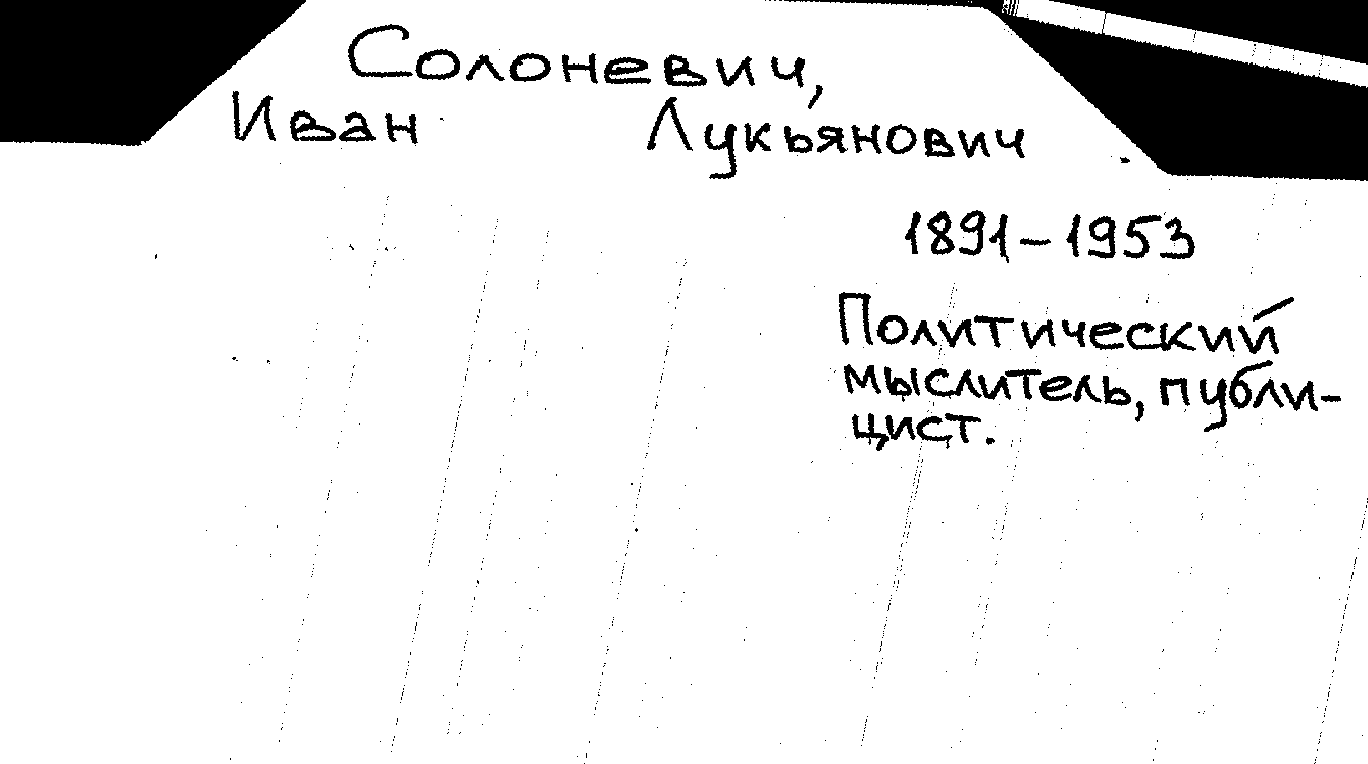 Солоневич,
Иван Лукьянович
1891-1953
Политический
мыслитель, публи-
цист.